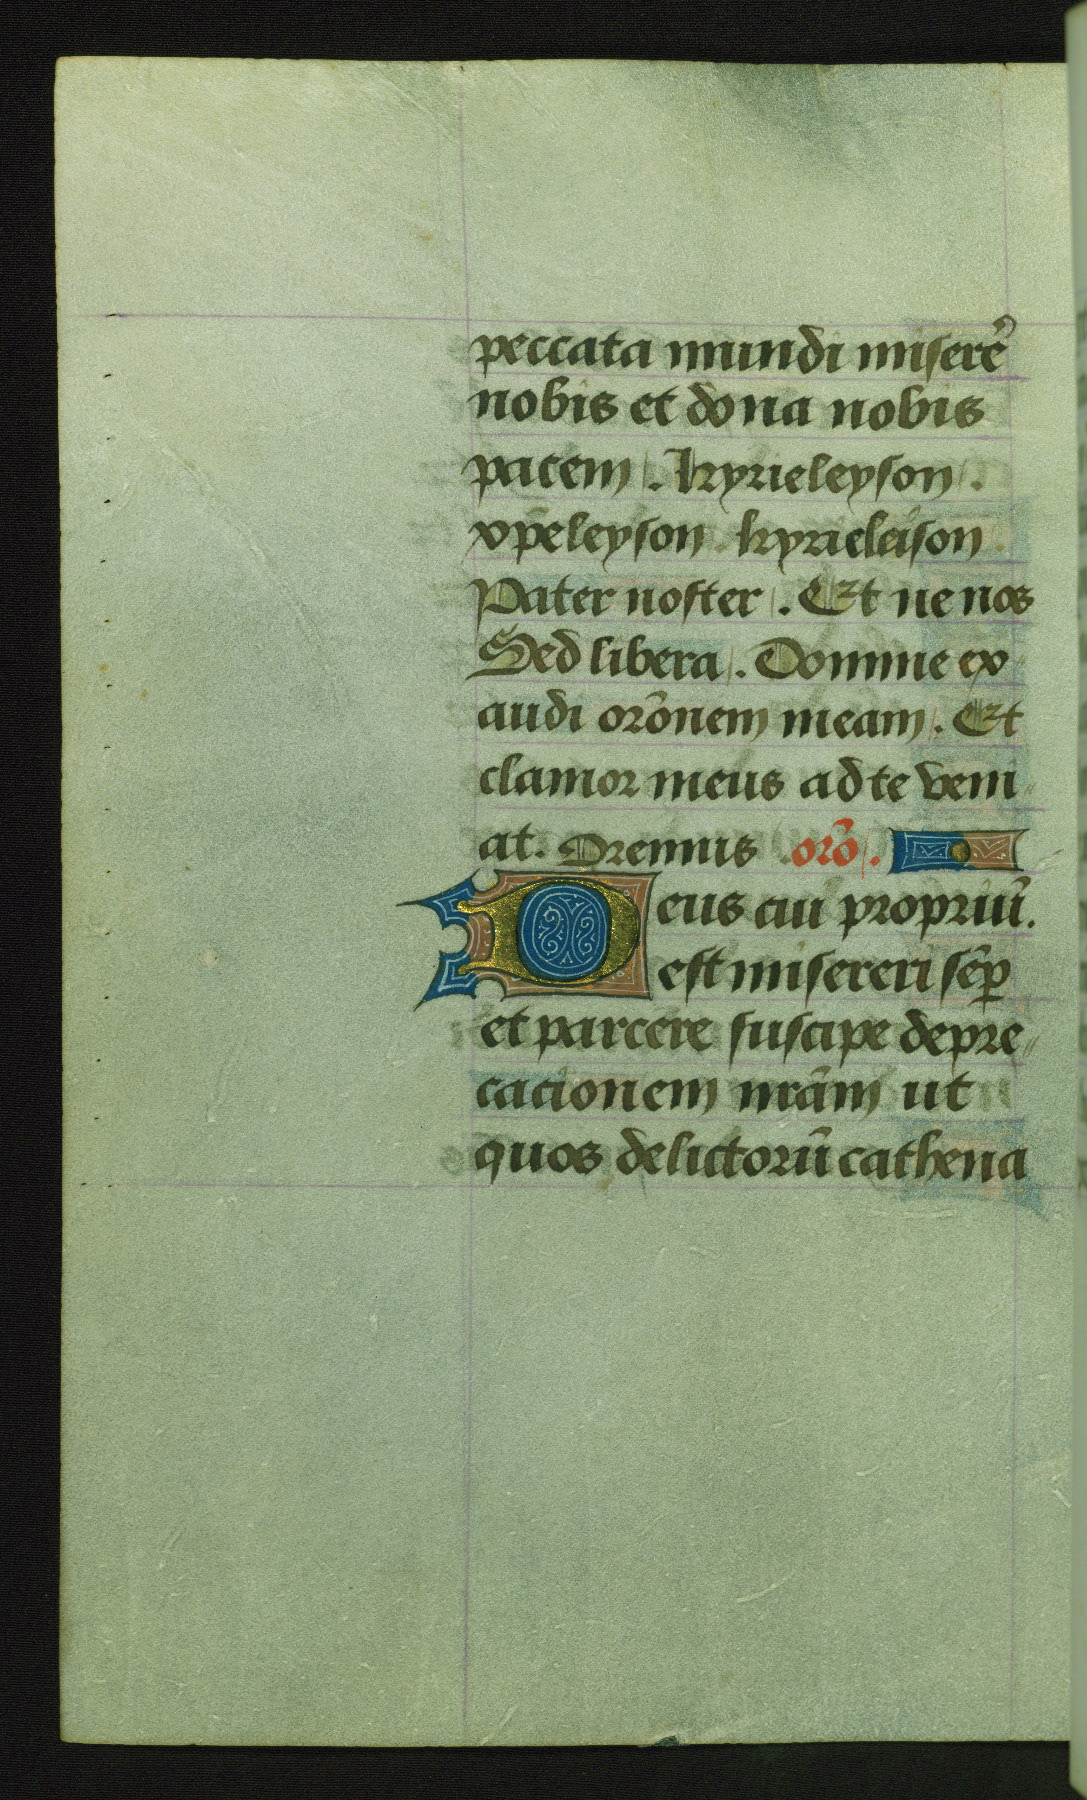 peccata mundi miserē
nobis et dona nobis
pacem . kyrieleyson .
xpeleyson . kyrieleison .
Pater noster . Et ne nos
Sed libera . Domine ex
audi orōnem meam . Et
clamor meus ad te veni
at . Oremus . orō .
Deus cui propriū .
est misereri sēp
et parcere suscipe depre
cacionem nrām ut
quos delictorū cathena